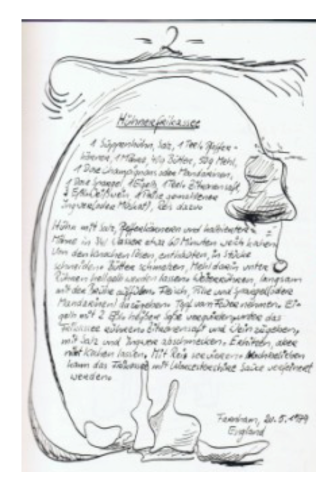 Hühnerfrikassee
1 Suppenhuhn, Salz, 1 Teel. Pfeffer-
körner, 1 Möhre, 40g Butter, 50g Mehl,
1 Dose Champignon oder Mandarinen,
1 Dose Spargel, 1 Eigelb, 1 Teel. Zitronensaft,
Eßl. Weißwein, 1 gemahlener
Ingwer (oder Muskat), Reis dazu
Huhn mit Salz, Pfefferkörnern und halbierter
Möhre in 3/4 l Wasser etwa 60 Minuten weich kochen.
Von den Knochen lösen, enthäuten, in Stücke
schneiden. Butter schmelzen, Mehl darin unter
Rühren hellgelb werden lassen. Weiterrühren, langsam
mit der Brühe auffüllen. Fleisch, Pilze und Spargel (oder
Mandarinen) dazurühren. Topf vom Feuer nehmen. Ei-
gelb mit 2 Eßl. heißer Soße unter das
Frikassee rühren. Zitronensaft und Wein zugeben,
mit Salz und Ingwer abschmecken. Erhitzen, aber
nicht kochen lassen. Mit Reis servieren. Nach Belieben
kann das Frikassee mit Worcestershire Sauce verfeinert
werden.
Farnham, 20.5.1979
England